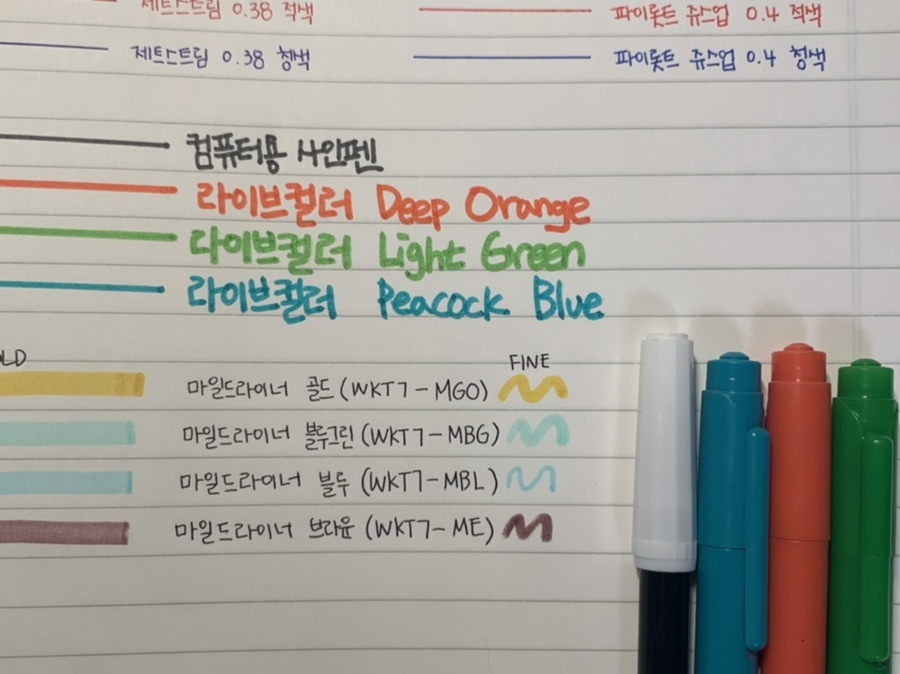 제트스트림 0.38 적색 파이롯트 쥬스업 0.4 적색
제트스트림 0.38 청색 파이롯트 쥬스업 0.4 청색
컴퓨터용 사인펜
라이브컬러 Deep Orange
라이브컬러 Light Green
라이브컬러 Peacock Blue
FINE
마일드라이너 골드 (WKT7-MGO)
마일드라이너 블루그린 (WKT7-MBG)
마일드라이너 블루 (WKT7-MBL)
마일드라이너 브라운 (WKT7-ME)